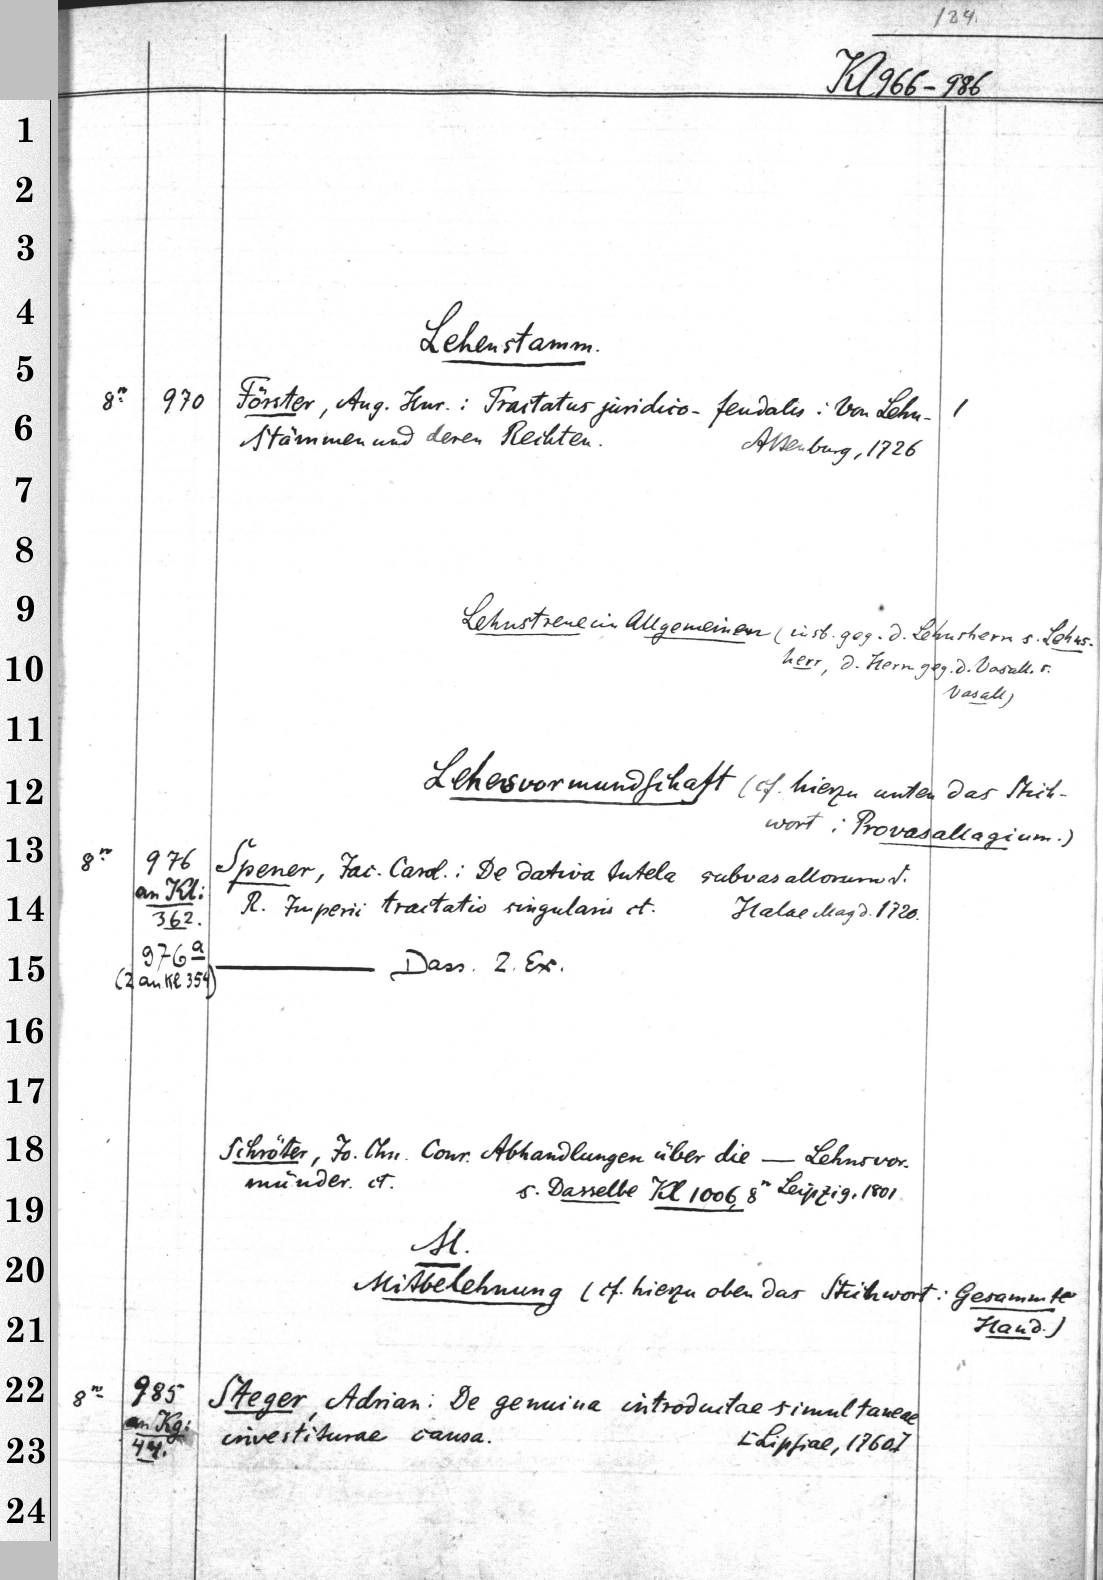 184.
Kl 966-986
1
2
3
4
Lehenstamm.
5
8º 970 Förster, Aug. Hnr.: Tractatus juridico-feudalis: Von Lehn- 1
6
stämmen und deren Rechten. Altenburg, 1726
7
8
9
Lehnstreue im Allgemeinen (insb. geg. d. Lehnsherrn s. Lehns-
10
herr, d. Herrn geg. d. Vasall. s.
11
Vasall)
12
Lehensvormundschaft (cf. hierzu unten das Stich-
wort: Provasallagium.)
13
8º 976 Spener, Jac. Carol.: De dativa tutela subvasallorum
an Kl:
14
362. R. Imperii tractatio singularis ct. Halae Magd. 1720.
976 a
15
(2 an Kl 354) Dass. 2. Ex.
16
17
18
Schröter, Jo. Chn. Conr. Abhandlungen über die — Lehnsvor-
münder. ct. s. Dasselbe Kl 1006, 8º Leipzig, 1801
19
M.
20
Mitbelehnung (cf. hierzu oben das Stichwort: Gesammte
21
Hand.)
22
8º 985 Steger, Adrian: De genuina introductae simultaneae
an Kg:
23
44. investiturae causa. [Lipsiae, 1760]
24